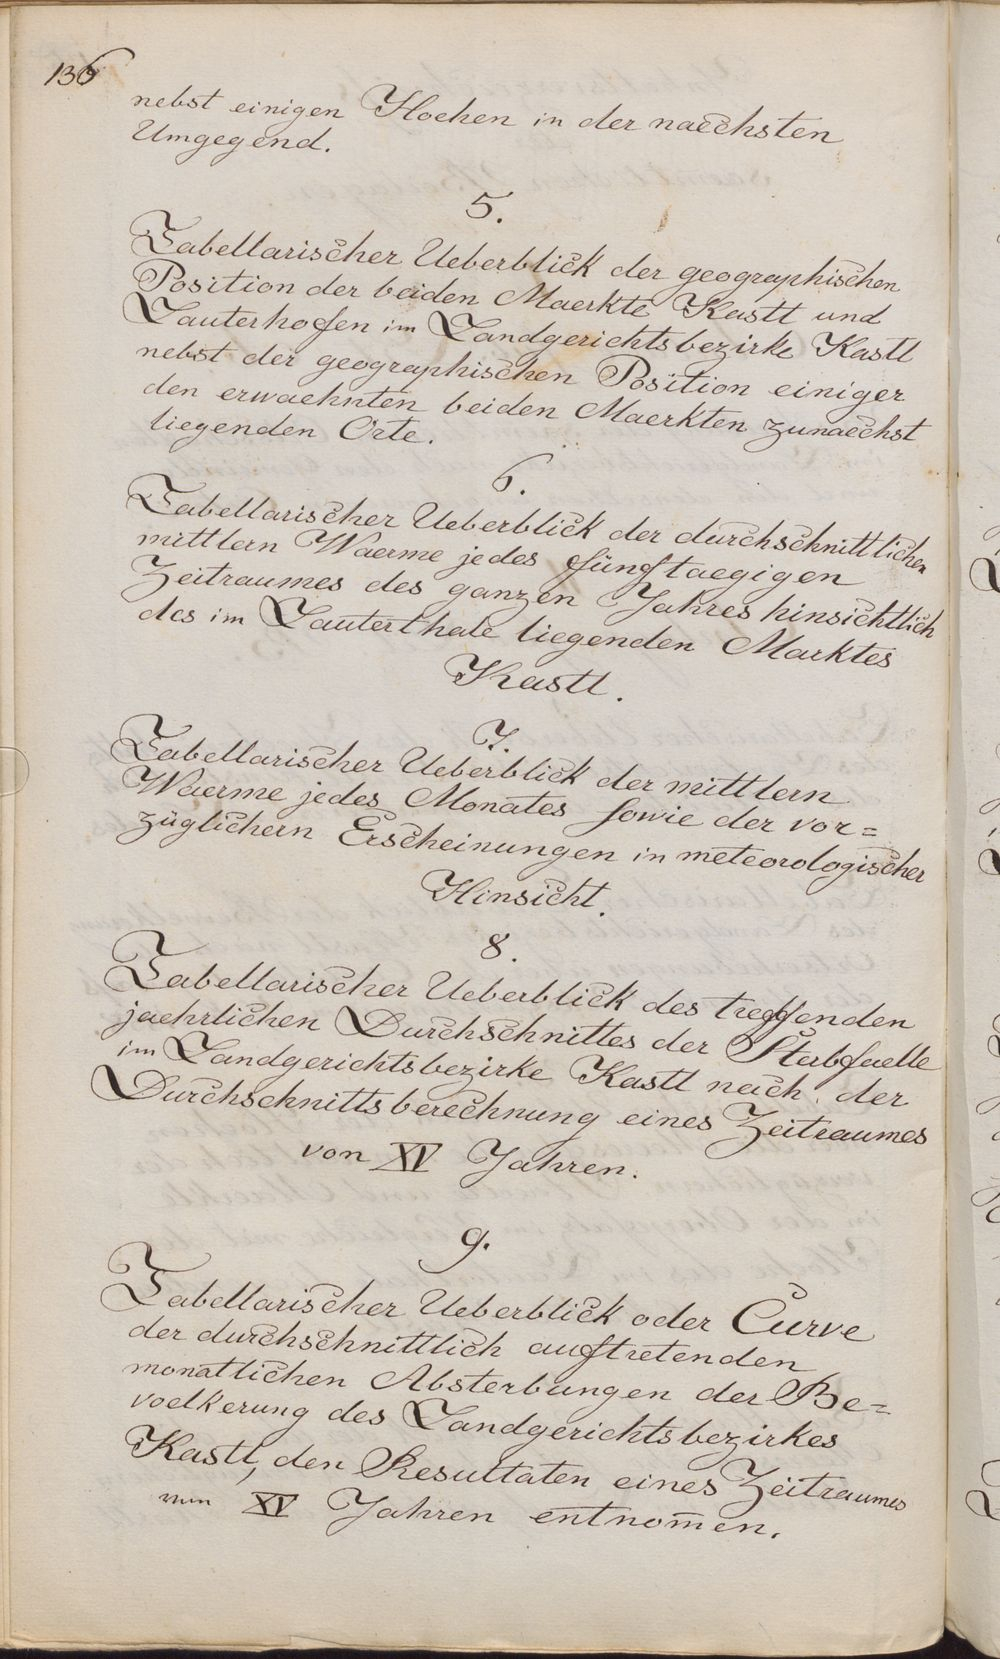 136
nebst einigen Hoehen in der naechsten
Umgegend.
5.
Tabellarischer Ueberblick der geographischen
Position der beiden Maerkte Kastl und
Lauterhofen im Landgerichtsbezirke Kastl
nebst der geographischen Position einiger
den erwaehnten beiden Maerkten zunaechst
liegenden Orte.
6.
Tabellarischer Ueberblick der durchschnittlichen
mittlern Waerme jedes fünftaegigen
Zeitraumes des ganzen Jahres hinsichtlich
des im Lauterthale liegenden Marktes
Kastl.
7.
Tabellarischer Ueberblick der mittlern
Waerme jedes Monates sowie der vor=
züglichern Erscheinungen in meteorologischer
Hinsicht.
8.
Tabellarischer Ueberblick des treffenden
jaehrlichen Durchschnittes der Sterbfaelle
im Landgerichtsbezirke Kastl nach der
Durchschnittsberechnung eines Zeitraumes
von XV Jahren.
9.
Tabellarischer Ueberblick oder Curve
der durchschnittlich auftretenden
monatlichen Absterbungen der Be=
voelkerung des Landgerichtsbezirkes
Kastl, den Resultaten eines Zeitraumes
von XV Jahren entnom̄en.